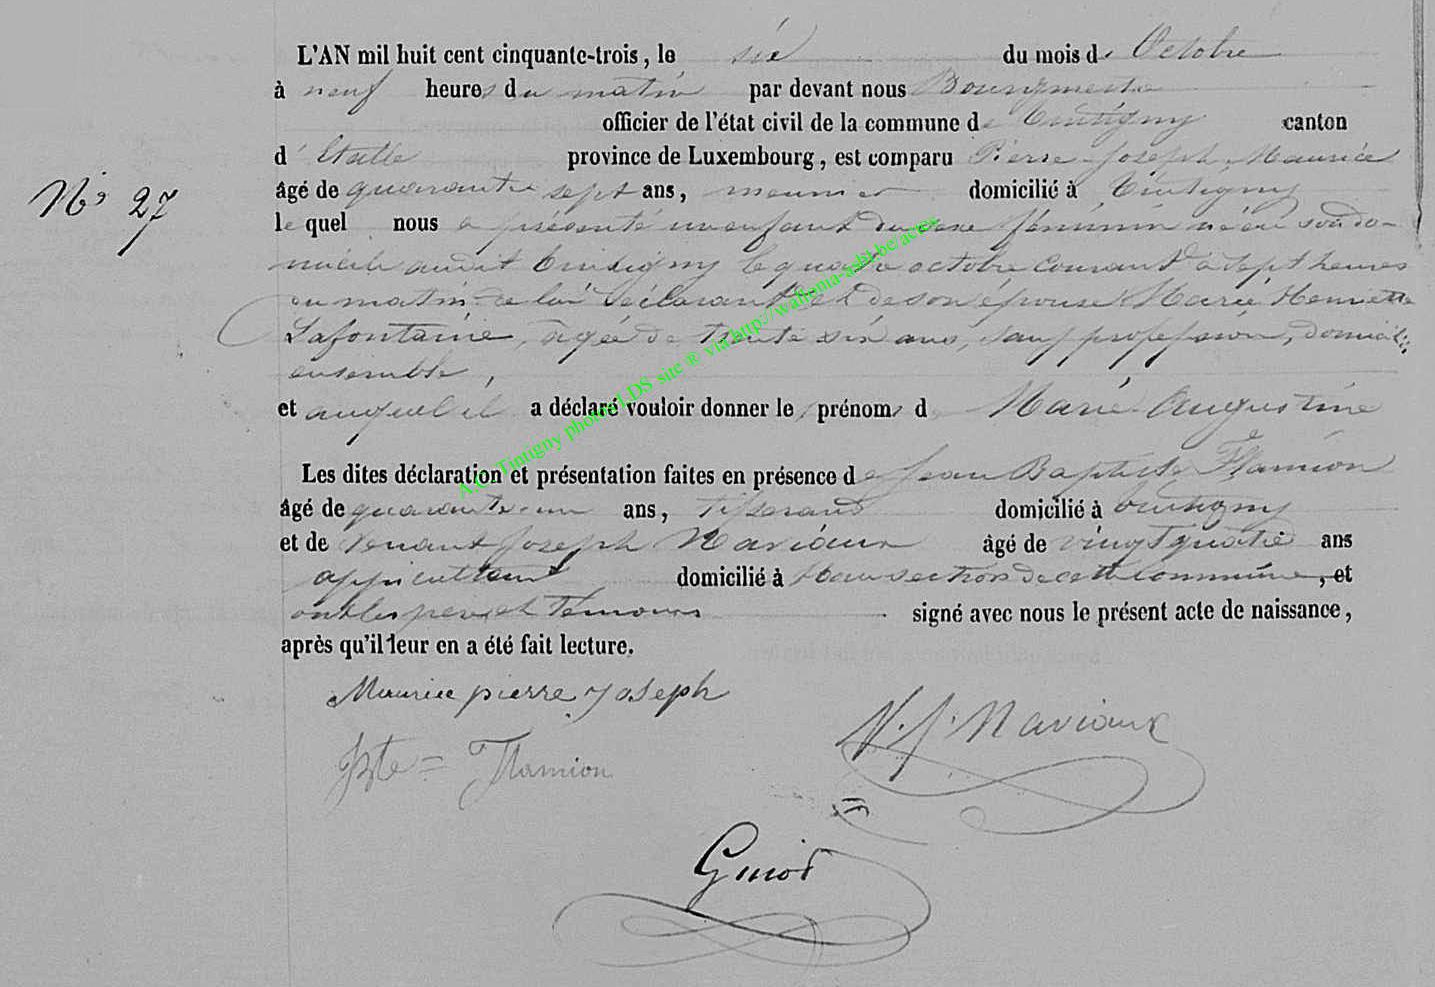 L'AN mil huit cent cinquante-trois, le six du mois d Octobre
à neuf heures du matin par devant nous Bourgmestre
officier de l'état civil de la commune de Tintigny canton
d' Etalle province de Luxembourg, est comparu Pierre Joseph Maurice
N° 27
âgé de quarante sept ans, meunier domicilié à Tintigny
le quel nous a présenté un enfant du sexe féminin né en son do-
micile audit Tintigny le quatre octobre courant à sept heures
du matin de lui déclarant et de son épouse Marie Henriette
Lafontaine, agée de trente six ans, sans profession, domiciliés
ensemble,
et auquel il a déclaré vouloir donner le prénoms de Marie Augustine
Les dites déclaration et présentation faites en présence de Jean Baptiste Flamion
âgé de quarante-un ans, tisserand domicilié à Tintigny
et de Venant Joseph Naviaux âgé de vingt quatre ans
domicilié à section de cette commune, et
ont les père et témoins signé avec nous le présent acte de naissance,
après qu'il leur en a été fait lecture.
Maurice pierre Joseph
N. J. Naviaux
JBte = Flamion
Guiot
A.C. Tintigny photos LDS site ® via http://wallonia-asbl.be/actes